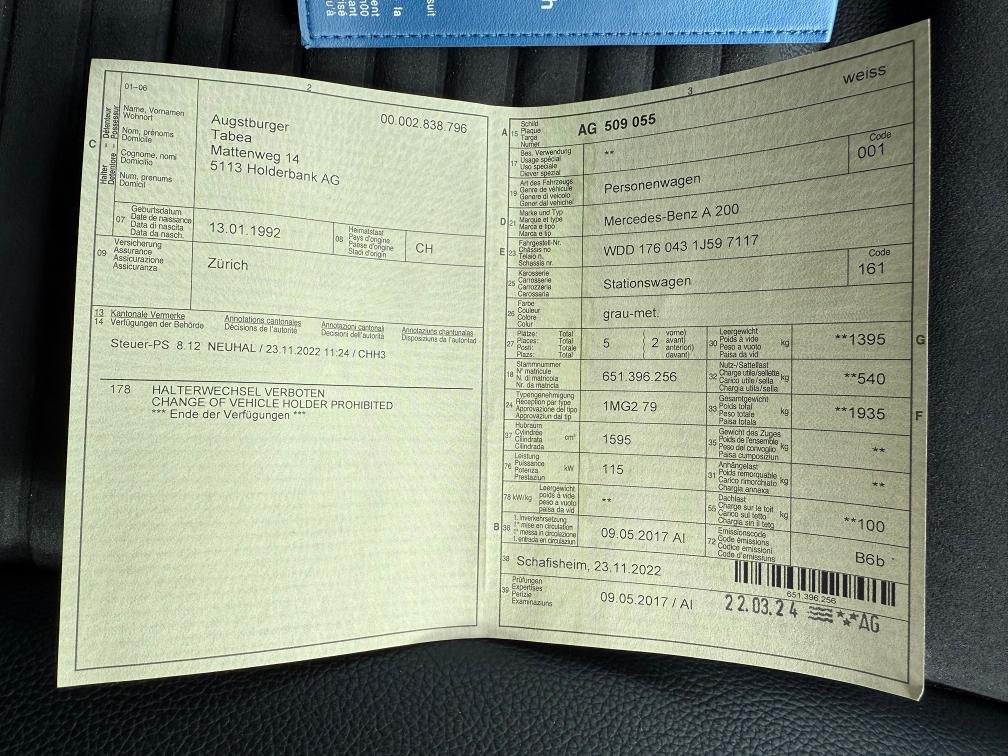 suit
h
la
ent
100
ant
isé
u'à
01-06
2
C
Détenteur
Possessur
Halter
Detentore
Name, Vornamen
Wohnort
Nom, prénoms
Domicile
Cognome, nomi
Domicilio
Num, prenums
Domicil
Augstburger
00.002.838.796
Tabea
Mattenweg 14
5113 Holderbank AG
07
Geburtsdatum
Date de naissance
Data di nascita
Data da nasch.
13.01.1992
08
Heimatstaat
Pays d'origine
Paese d'origine
Stadi d'origin
CH
09
Versicherung
Assurance
Assicurazione
Assicuranza
Zürich
13 Kantonale Vermerke
14 Verfügungen der Behörde
Annotations cantonales
Décisions de l'autorité
Annotazioni cantonali
Decisioni dell'autorità
Annotaziuns chantunalas
Disposiziuns da l'autoritad
Steuer-PS 8.12 NEUHAL / 23.11.2022 11:24 / CHH3
178 HALTERWECHSEL VERBOTEN
CHANGE OF VEHICLE HOLDER PROHIBITED
*** Ende der Verfügungen ***
3
weiss
A 15
Schild
Plaque
Targa
Numer
AG 509 055
17
Bes. Verwendung
Usage spécial
Uso speciale
Diever spezial
**
Code
001
19
Art des Fahrzeugs
Genre de véhicule
Genere di veicolo
Gener dal vehichel
Personenwagen
D 21
Marke und Typ
Marque et type
Marca e tipo
Marca e tip
Mercedes-Benz A 200
E 23
Fahrgestell-Nr.
Châssis no
Telaio n.
Schassis nr.
WDD 176 043 1J59 7117
25
Karosserie
Carrosserie
Carrozzeria
Carossaria
Stationswagen
Code
161
26
Farbe
Couleur
Colore
Colur
grau-met.
27
Plätze: Total
Places: Total
Posti: Totale
Plazs: Total
5
2
vorne)
avant)
anteriori)
davant)
30
Leergewicht
Poids à vide
Peso a vuoto
Paisa da vid
kg
**1395
G
18
Stammnummer
N° matricule
N. di matricola
Nr. da matricla
651.396.256
32
Nutz-/Sattellast
Charge utile/sellette
Carico utile/sella
Chargia utila/sella
kg
**540
24
Typengenehmigung
Réception par type
Approvazione del tipo
Approvaziun dal tip
1MG2 79
33
Gesamtgewicht
Poids total
Peso totale
Paisa totala
kg
**1935
F
37
Hubraum
Cylindrée
Cilindrata
Cilindrada
cm³
1595
35
Gewicht des Zuges
Poids de l'ensemble
Peso del convoglio
Paisa cumposiziun
kg
**
76
Leistung
Puissance
Potenza
Prestaziun
kW
115
31
Anhängelast
Poids remorquable
Carico rimorchiato
Chargia annexa
kg
**
78 kW/kg
Leergewicht
poids à vide
peso a vuoto
paisa da vid
**
55
Dachlast
Charge sur le toit
Carico sul tetto
Chargia sin il tetg
kg
**100
B 36
1. Inverkehrsetzung
1re mise en circulation
1a messa in circolazione
1. entrada en circulaziun
09.05.2017 AI
72
Emissionscode
Code émissions
Codice emissioni
Code d'emissiuns
B6b
38
Schafisheim, 23.11.2022
651.396.256
39
Prüfungen
Expertises
Perizie
Examinaziuns
09.05.2017 / AI
22.03.24 AG